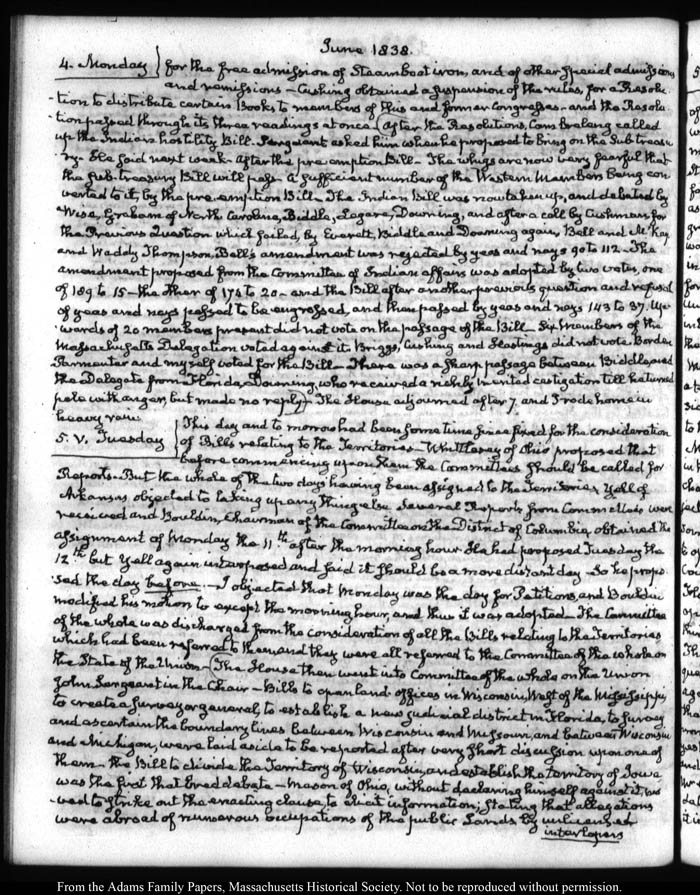 June 1838.
4. Monday } for the free admission of Steamboat iron, and of other special admissions
and remissions — Cushing obtained a suspension of the rules, for a Resolu-
-tion to distribute certain Books to members of this and former Congresses — and the Resolu-
-tion passed through its three readings at once. (After the Resolutions, Cambreleng called
up the Indian hostility Bill. Sergeant asked him when he proposed to bring on the Sub treasu-
-ry. He said next week — after the pre emption Bill — The whigs are now very fearful that
the Sub-treasury Bill will pass. A sufficient number of the Western Members being con-
verted to it, by the pre-emption Bill — The Indian Bill was now taken up, and debated by
Wise, Graham of North Carolina, Biddle, Legare, Downing, and after a call by Cushman for
the Previous Question which failed, by Everett, Biddle and Downing again, Bell and McKay
and Waddy Thompson, Bell's amendment was rejected by yeas and nays 90 to 112 — The
amendment proposed from the Committee of Indian affairs was adopted by two votes, one
of 189 to 15 — the other of 176 to 20 — and the Bill after another previous question and refusal
of yeas and nays passed to be engrossed, and then passed by yeas and nays 143 to 37. Up-
-wards of 20 members present did not vote on the passage of the Bill — Six Members of the
Massachusetts Delegation voted against it. Briggs, Cushing and Hastings did not vote. Borden
Parmenter and myself voted for the Bill — There was a sharp passage between Biddle and
the Delegate from Florida, Downing, who received a richly merited castigation till he turned
pale with anger, but made no reply. The House adjourned after 7, and I rode home in
heavy rain.
5. V. Tuesday } This day and to morrow had been some time since fixed for the consideration
of Bills relating to the Territories — Whittlesey of Ohio proposed that
before commencing upon them the Committees should be called for
Reports. But the whole of the two days having been assigned to the Territories, Yell of
Arkansas objected to taking up any thing else. Several Reports from Committees were
received and Bouldin, Chairman of the Committee on the District of Columbia, obtained the
assignment of Monday the 11th after the morning hour. He had proposed Tuesday the
12th but Yell again interposed and said it should be a more distant day — So he propo-
sed the day before. — I objected that Monday was the day for Petitions, and Bouldin
modified his motion to except the morning hour, and thus it was adopted — The Committee
of the whole was discharged from the consideration of all the Bills relating to the Territories
which had been referred to them, and they were all referred to the Committee of the whole on
the State of the Union — (The House then went into Committee of the whole on the Union
John Sergeant in the Chair — Bills to open land offices in Wisconsin, West of the Mississippi,
to create a surveyor general, to establish a new judicial district in Florida, to survey
and ascertain the boundary lines between Wisconsin and Missouri, and between Wisconsin
and Michigan, were laid aside to be reported after very short discussion upon one of
them — the Bill to divide the Territory of Wisconsin, and establish the territory of Iowa
was the first that bred debate — Mason of Ohio, without declaring himself against it, mo-
ved to strike out the enacting clause, to elicit information; stating that allegations
were abroad of numerous occupations of the public Lands by unlicensed
interlopers
From the Adams Family Papers, Massachusetts Historical Society. Not to be reproduced without permission.